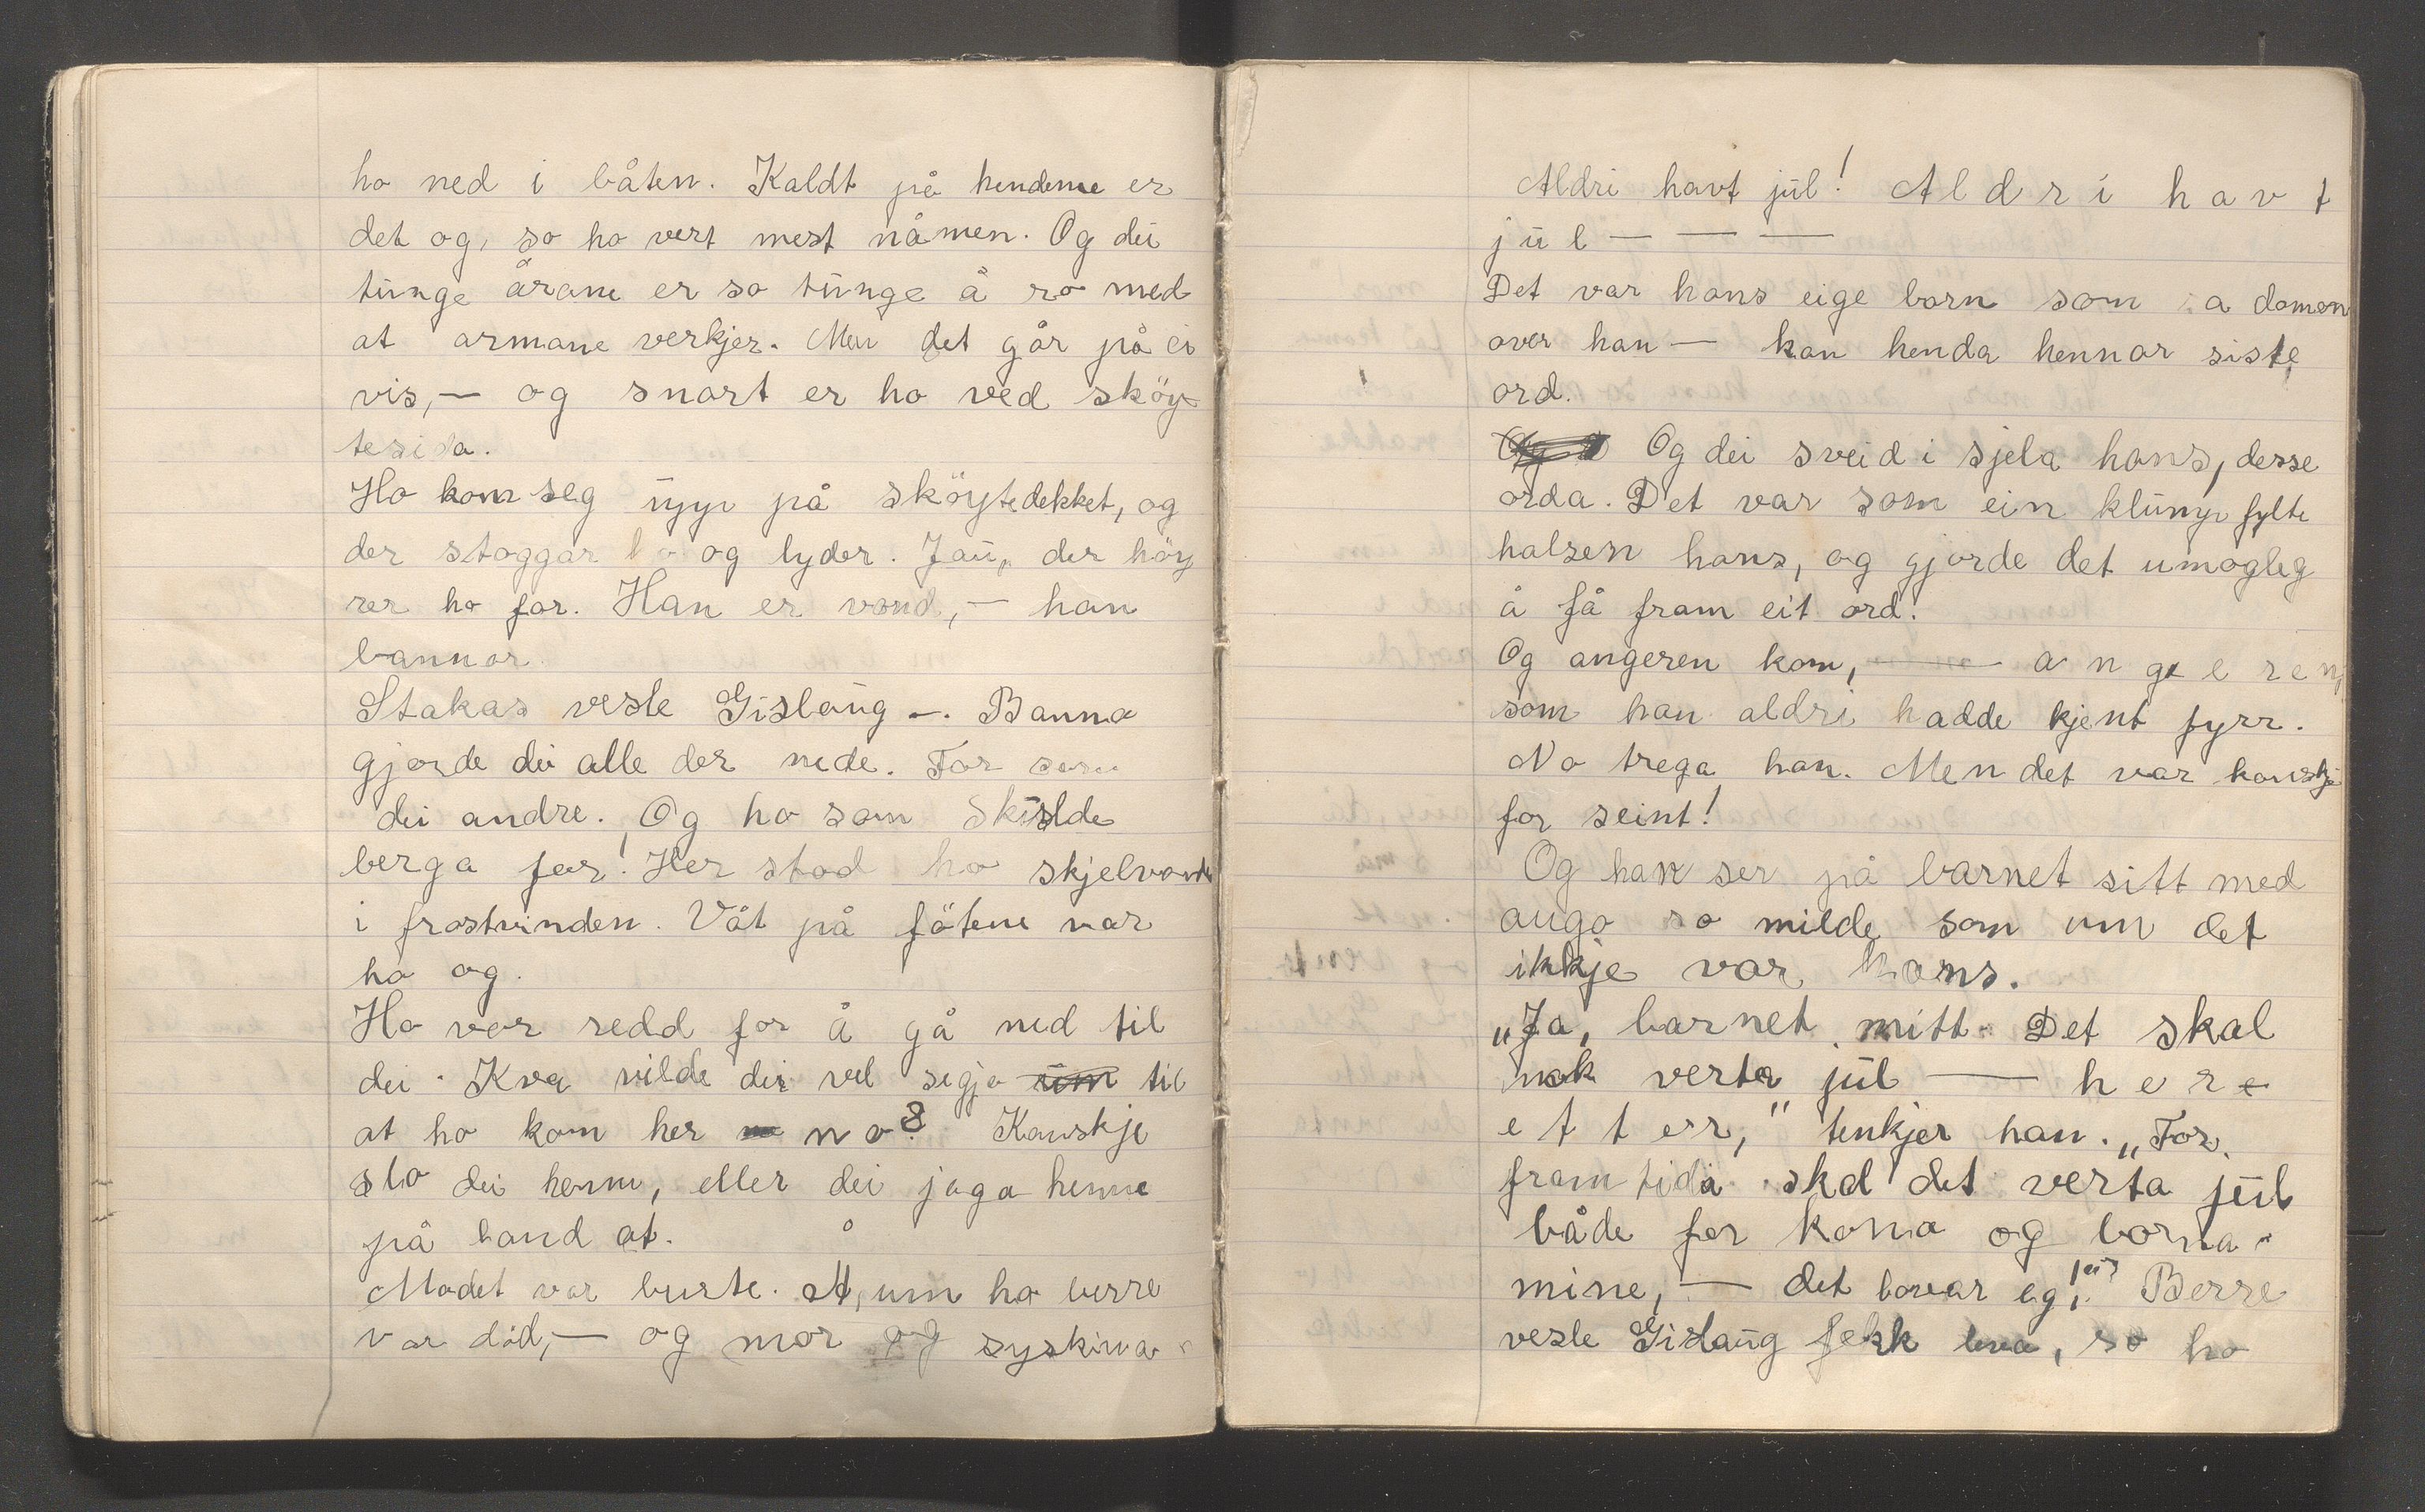 ho ned i båten. Kaldt på hendene er
det og, so ho vert mest nåmen. Og dei
tunge årane er so tunge å ro med
at armane verkjer. Men det går på ei
vis, — og snart er ho ved sköy-
tesida.
Ho kom seg upp på sköytedekket, og
der stoggar ho og lyder. Jau, der höy
rer ho far. Han er vond, — han
bannar.
Stakas vesle Gislaug —. Banna
gjorde dei alle der nede. Far som
dei andre. Og ho som skulde
berga far! Her stod ho skjelvande
i frostvinden. Våt på fötene var
ho og.
Ho var redd for å gå ned til
dei. Kva vilde dei vel segja um til
at ho kom her no? Kanskje
slo dei henne, eller dei jaga henne
på land at.
Modet var burte. Å, um ho berre
var död, — og mor og syskina
Aldri havt jul! Aldri havt
jul — — —
Det var hans eige barn som sa domen
over han — kan henda hennar siste
ord.
Og Og dei sveid i sjela hans, desse
orda. Det var som ein klump fylte
halsen hans, og gjorde det umogleg
å få fram eit ord.
Og angeren kom, — angeren,
som han aldri hadde kjent fyrr.
No trega han. Men det var kanskje
for seint!
Og han ser på barnet sitt med
augo so milde som um det
ikkje var hans.
„Ja, barnet mitt. Det skal
nok verta jul — her-
etter," tenkjer han. „For
framtida skal det verta jul
både for kona og borna
mine, — det lovar eg!" Berre
vesle Gislaug fekk leva, so ho